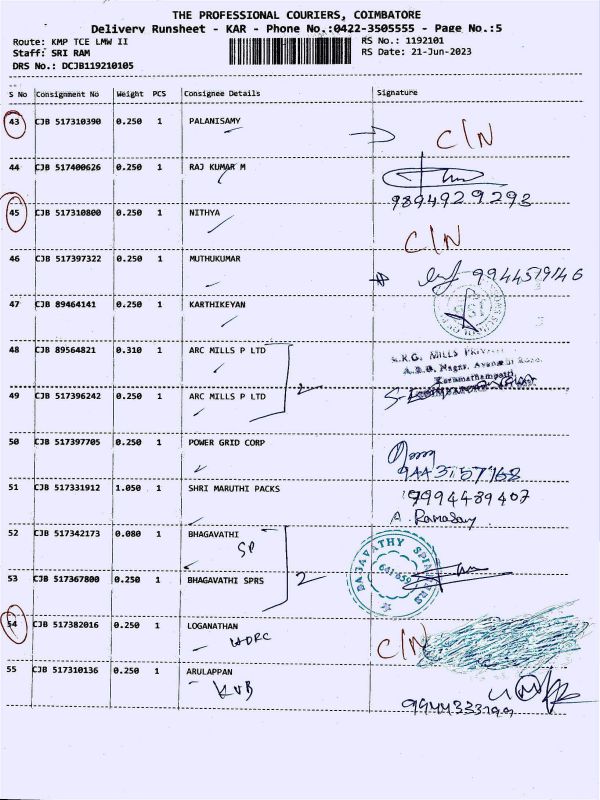 THE PROFESSIONAL COURIERS, COIMBATORE
Delivery Runsheet - KAR - Phone No.:0422-3505555 - Page No.:5
Route: KMP TCE LMW II RS No.: 1192101
Staff: SRI RAM RS Date: 21-Jun-2023
DRS No.: DCJB119210105
S No Consignment No Weight PCS Consignee Details Signature
43 CJB 517310390 0.250 1 PALANISAMY C/N
44 CJB 517400626 0.250 1 RAJ KUMAR M
9894929293
45 CJB 517310800 0.250 1 NITHYA C/N
46 CJB 517397322 0.250 1 MUTHUKUMAR 9944519146
47 CJB 89464141 0.250 1 KARTHIKEYAN
48 CJB 89564821 0.310 1 ARC MILLS P LTD MILLS
2
49 CJB 517396242 0.250 1 ARC MILLS P LTD
50 CJB 517397705 0.250 1 POWER GRID CORP
9443157168
51 CJB 517331912 1.050 1 SHRI MARUTHI PACKS 9994489407
A. Ramasamy
52 CJB 517342173 0.080 1 BHAGAVATHI
SP
BAGAVATHY SPINNERS
641 659
53 CJB 517367800 0.250 1 BHAGAVATHI SPRS 2
54 CJB 517382016 0.250 1 LOGANATHAN C/N
HDFC
55 CJB 517310136 0.250 1 ARULAPPAN
KVB